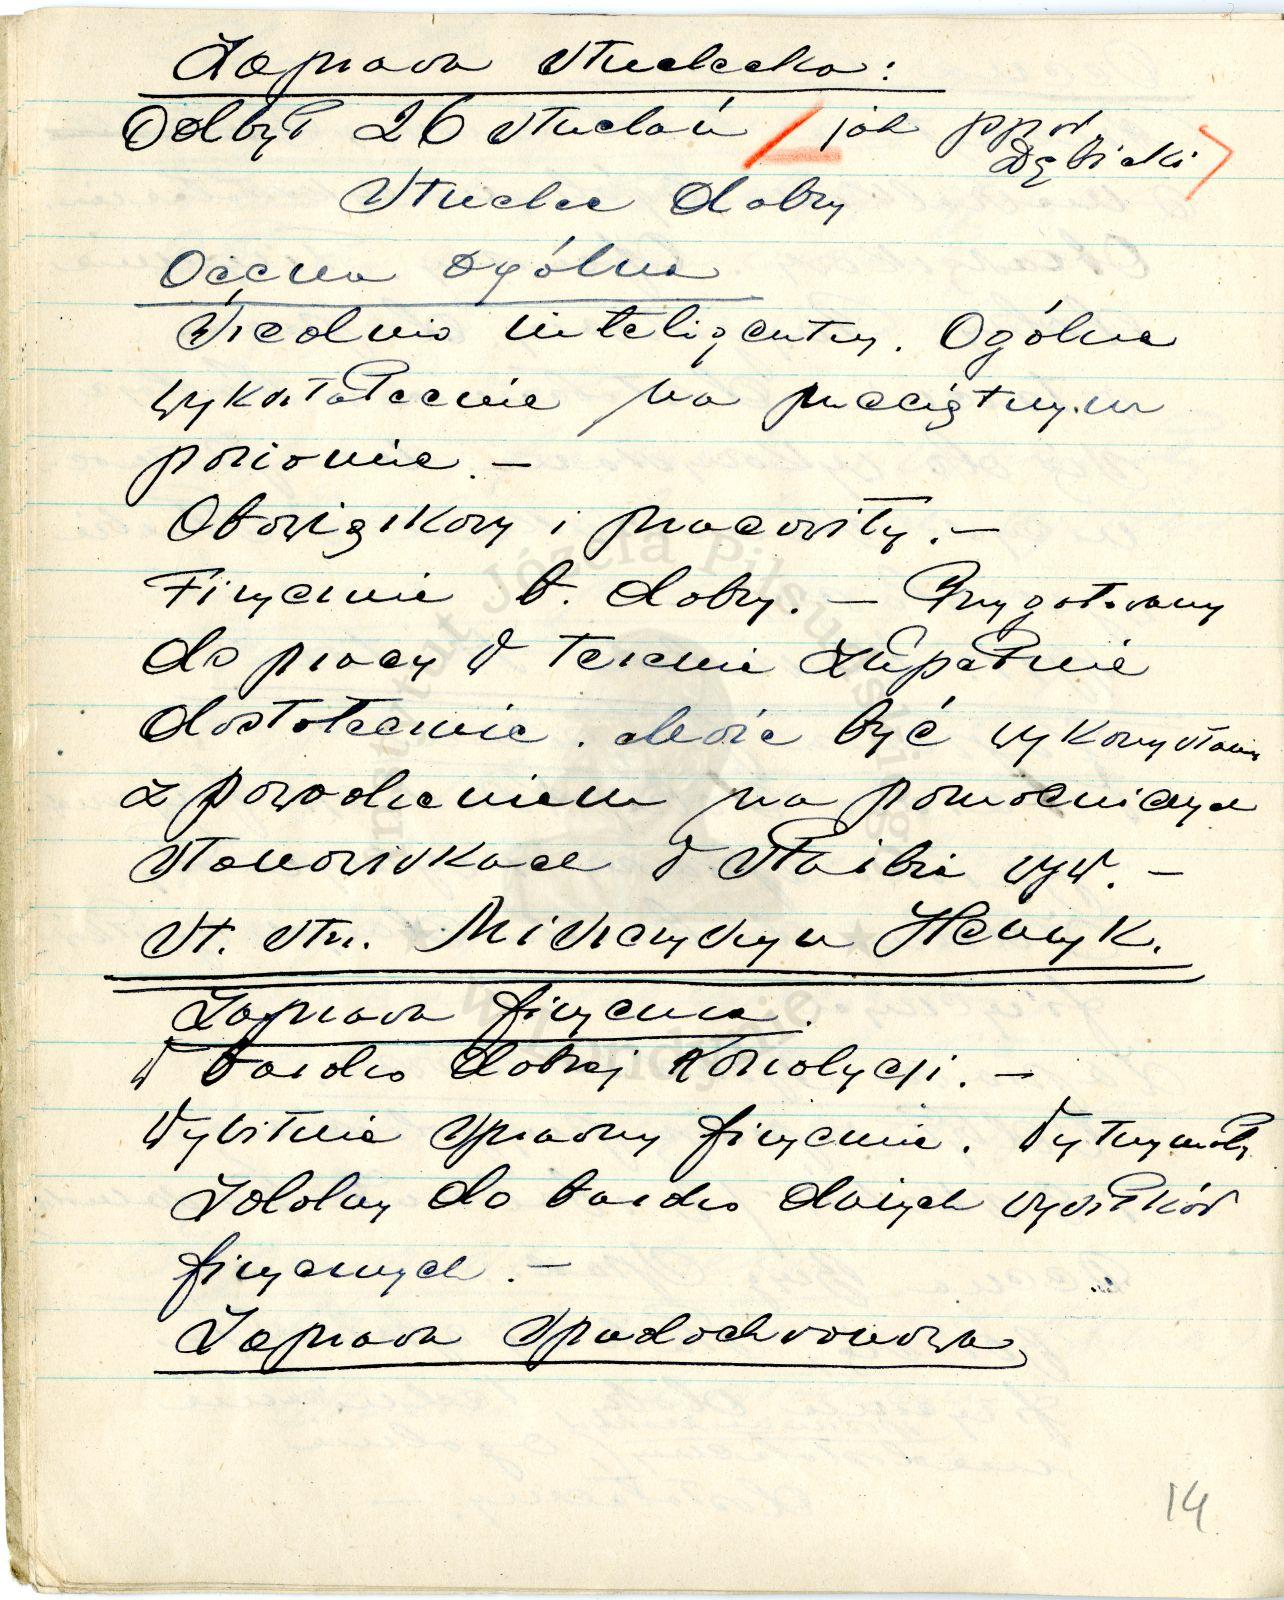 Zaprawa strzelecka:
Odbył 26 strzelań / jak ppor
Dębicki >
Strzelec dobry
Ocena ogólna
Średnio inteligentny. Ogólne
wykształcenie na przeciętnym
poziomie. —
Obowiązkowy i pracowity. —
Fizycznie b. dobry. — Przygotowany
do pracy w terenie zupełnie
dostatecznie. Może być wykorzystany
z powodzeniem na pomocniczych
stanowiskach w służbie wyw. —
St. strz. Mieszczyszyn Henryk.
Zaprawa fizyczna.
W bardzo dobrej kondycji. —
Wybitnie sprawny fizycznie. Wytrzymały
Zdolny do bardzo dużych wysiłków
fizycznych. —
Zaprawa spadochronowa
14